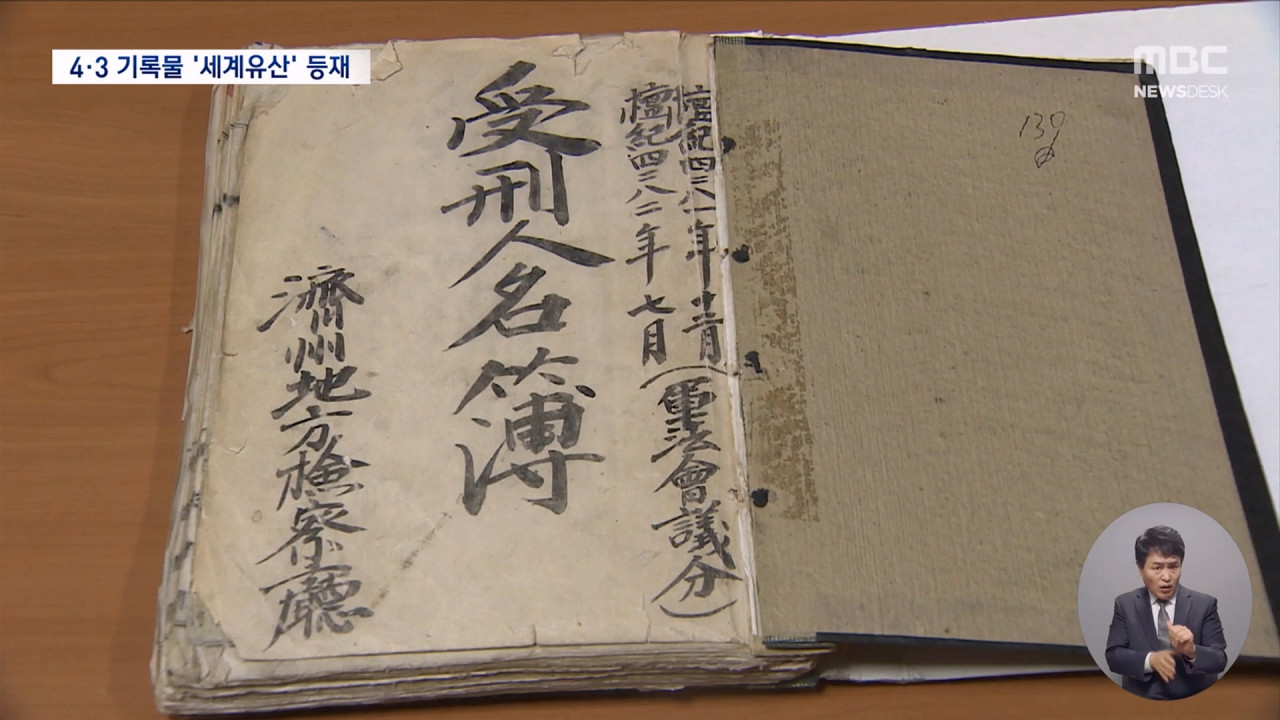 4·3 기록물 '세계유산' 등재
MBC
NEWSDESK
130
檀紀四二八一年十二月
檀紀四二八二年七月
(軍法會議分)
受刑人名簿
濟州地方檢察廳